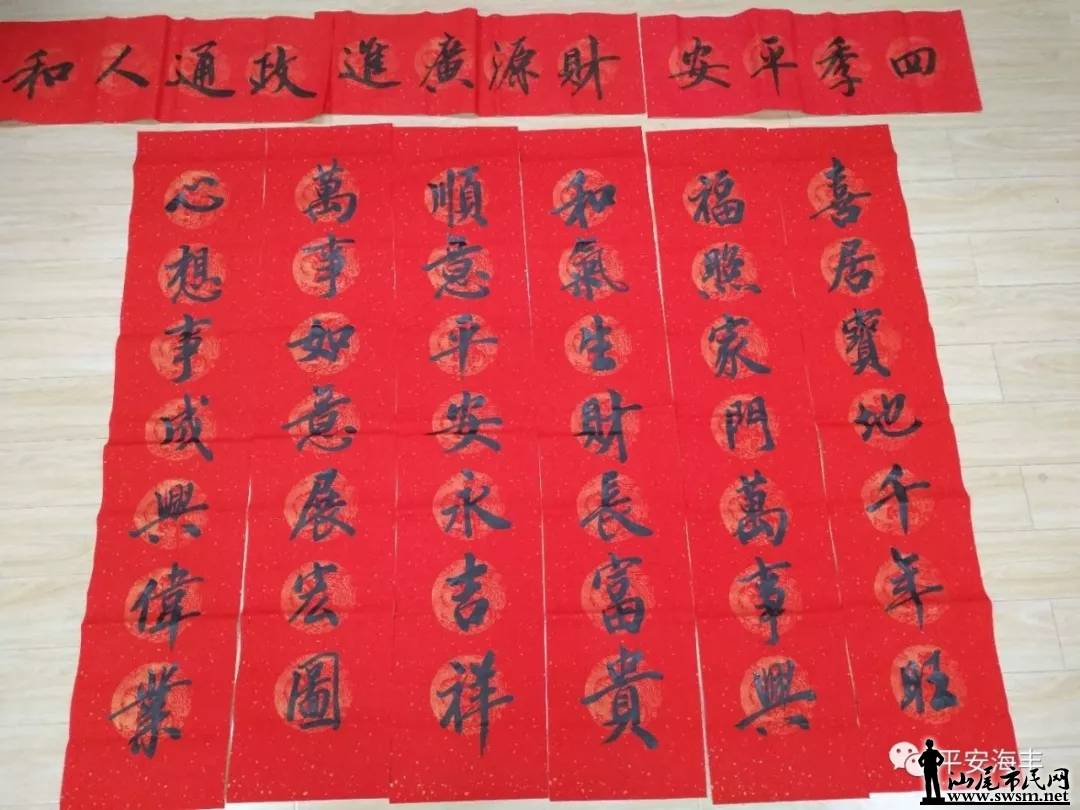 四季平安
財源廣進
政通人和
喜居寶地千年旺
福照家門萬事興
和氣生財長富貴
順意平安永吉祥
萬事如意展宏圖
心想事成興偉業
平安海丰
汕尾市民网
www.swsm.net